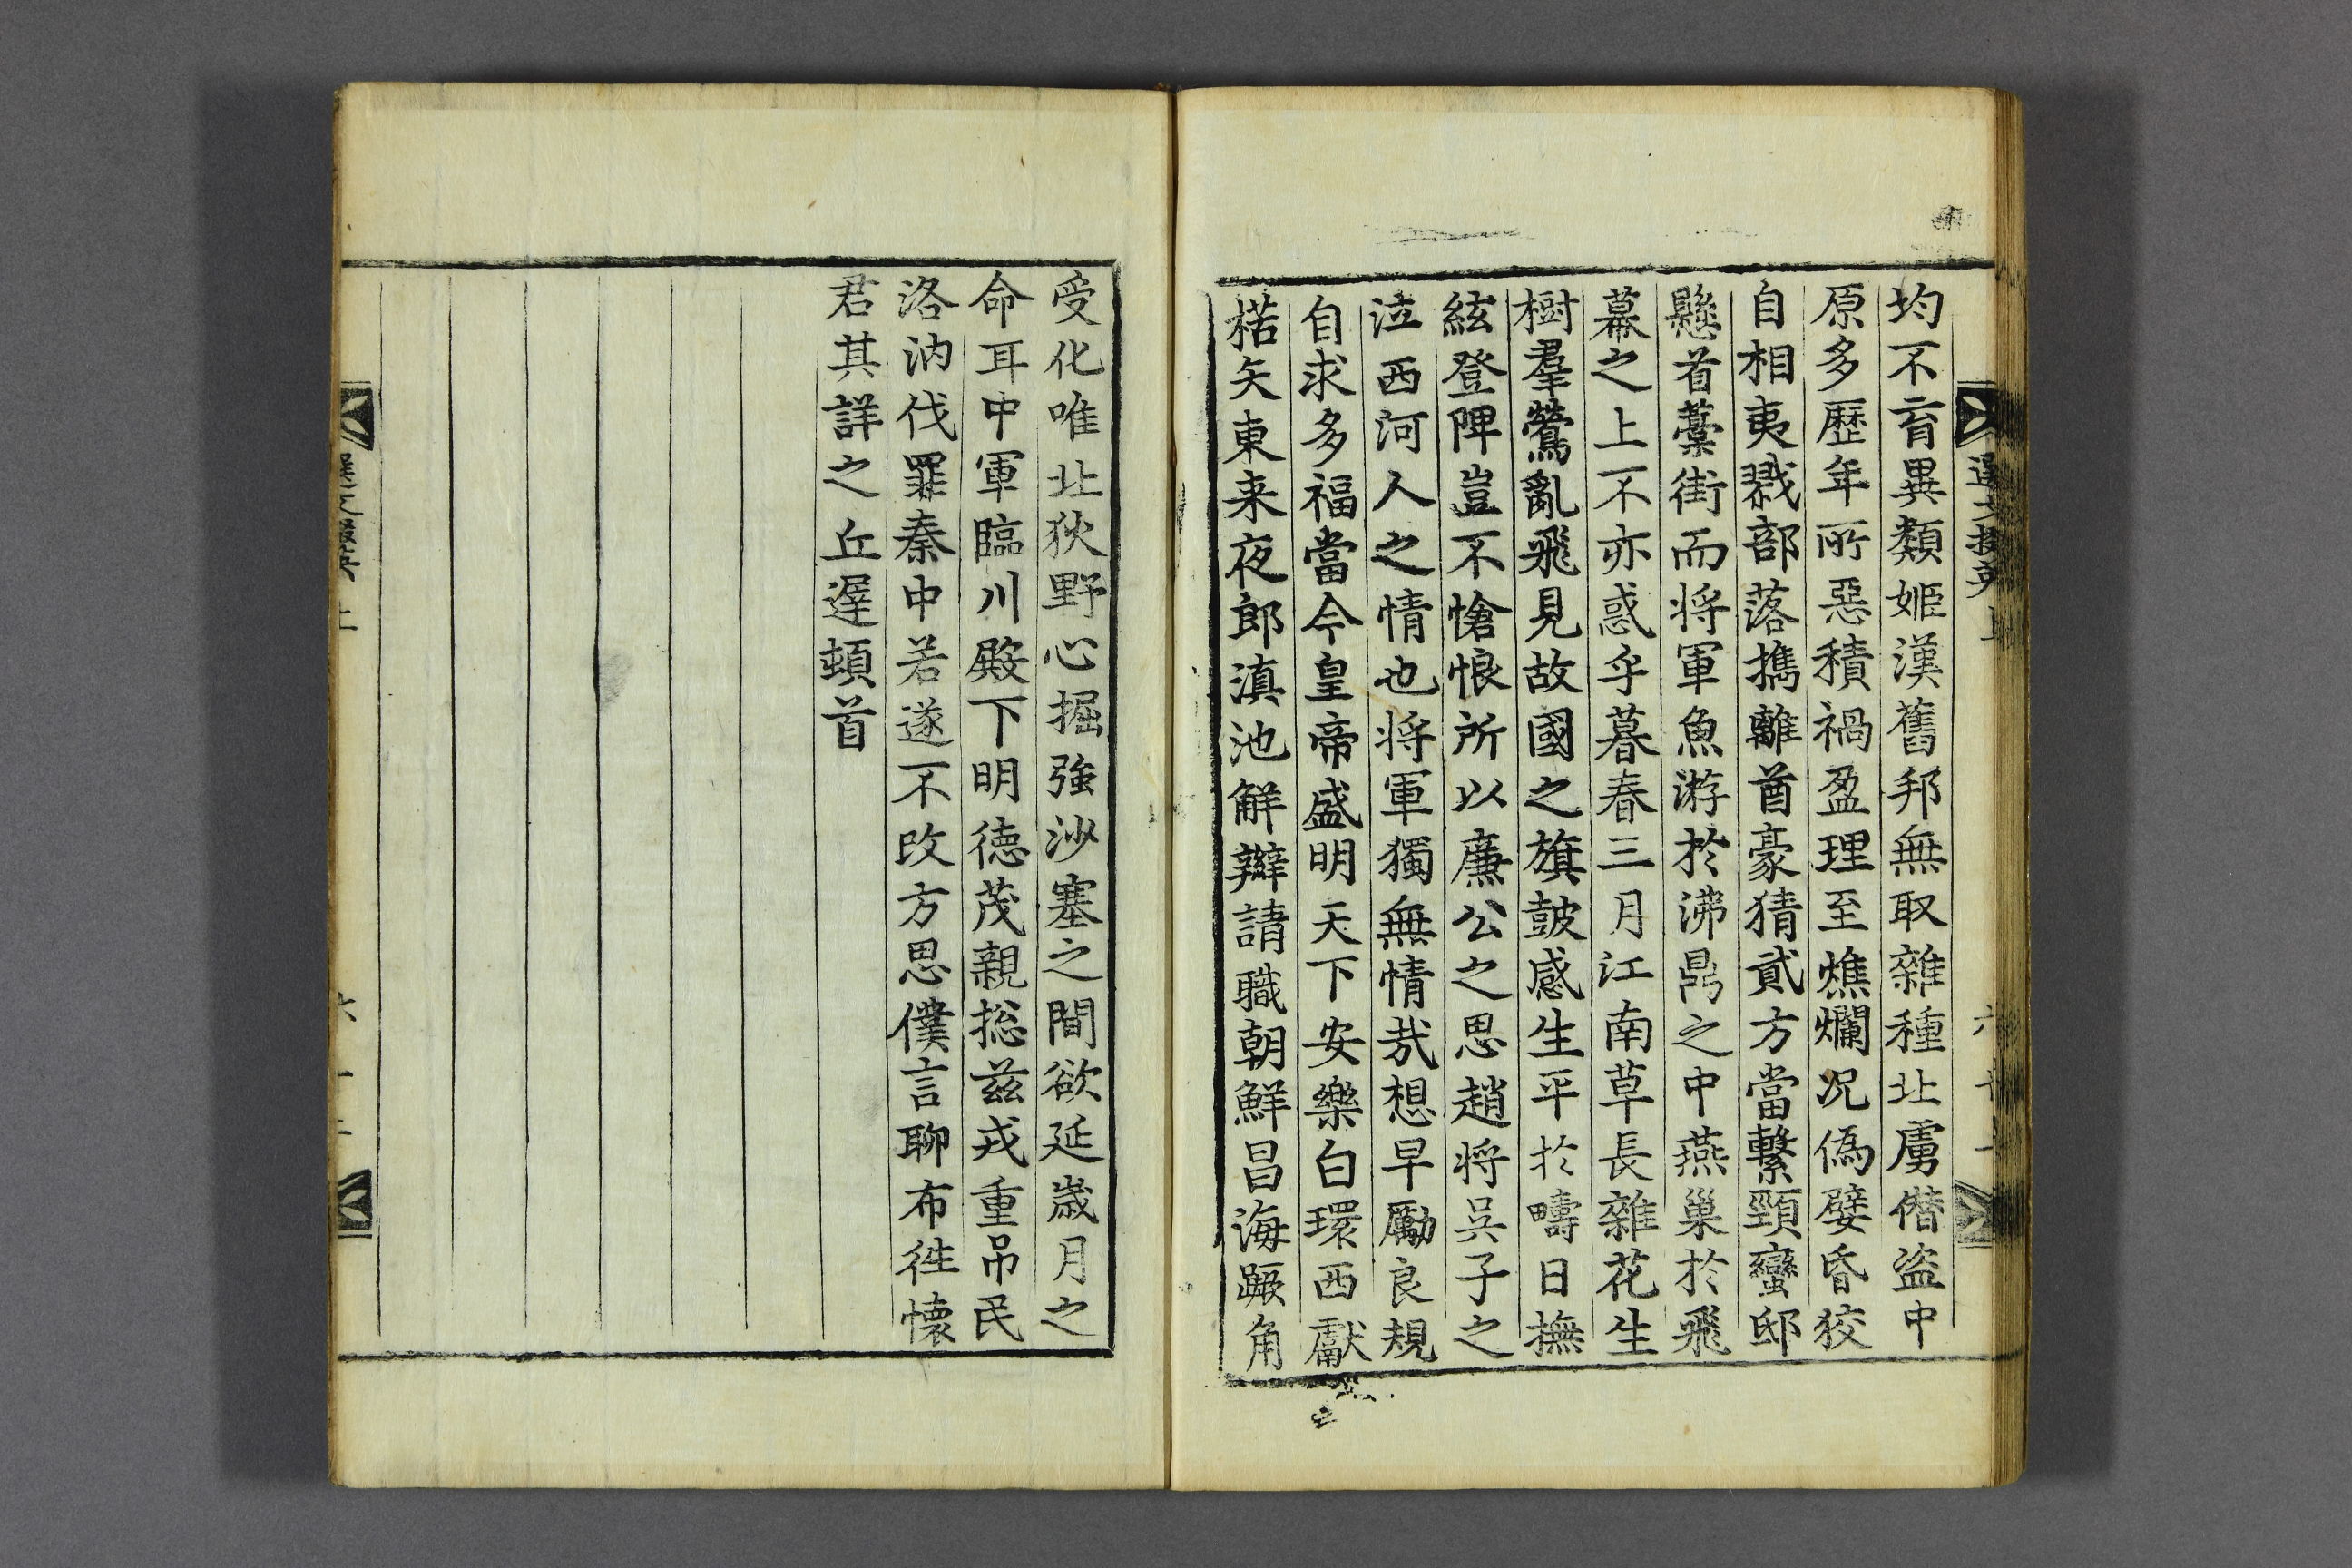 均不育異類姬漢舊邦無取雜種北虜僭盜中
原多歷年所惡積禍盈理至燋爛况僞孽昏狡
自相夷戮部落擕離酋豪猜貳方當繫頸蠻邸
懸首藁街而將軍魚游於沸鼎之中燕巢於飛
幕之上不亦惑乎暮春三月江南草長雜花生
樹羣鶯亂飛見故國之旗鼓感生平於疇日撫
絃登陴豈不愴悢所以廉公之思趙將吳子之
泣西河人之情也將軍獨無情哉想早勵良規
自求多福當今皇帝盛明天下安樂白環西獻
楛矢東来夜郎滇池觧辮請職朝鮮昌海蹶角
受化唯北狄野心掘強沙塞之間欲延歲月之
命耳中軍臨川殿下明德茂親捴茲戎重吊民
洛汭伐罪秦中若遂不改方思僕言聊布徃懷
君其詳之丘遲頓首
選文掇英 上